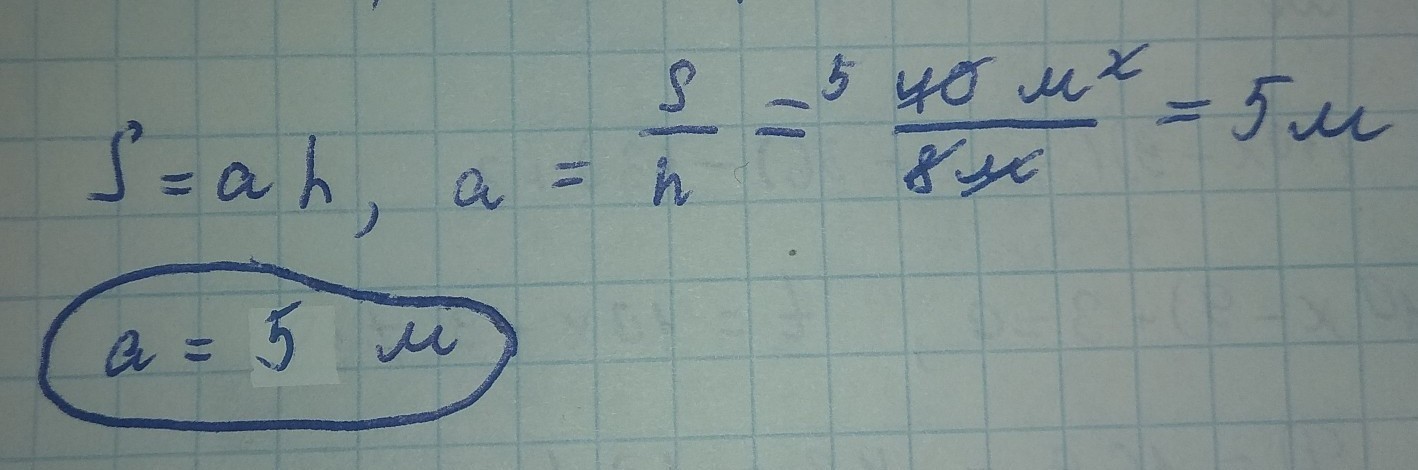 S = a h, a = S/h = ⁵ 40 м²/8 м = 5 м
a = 5 м